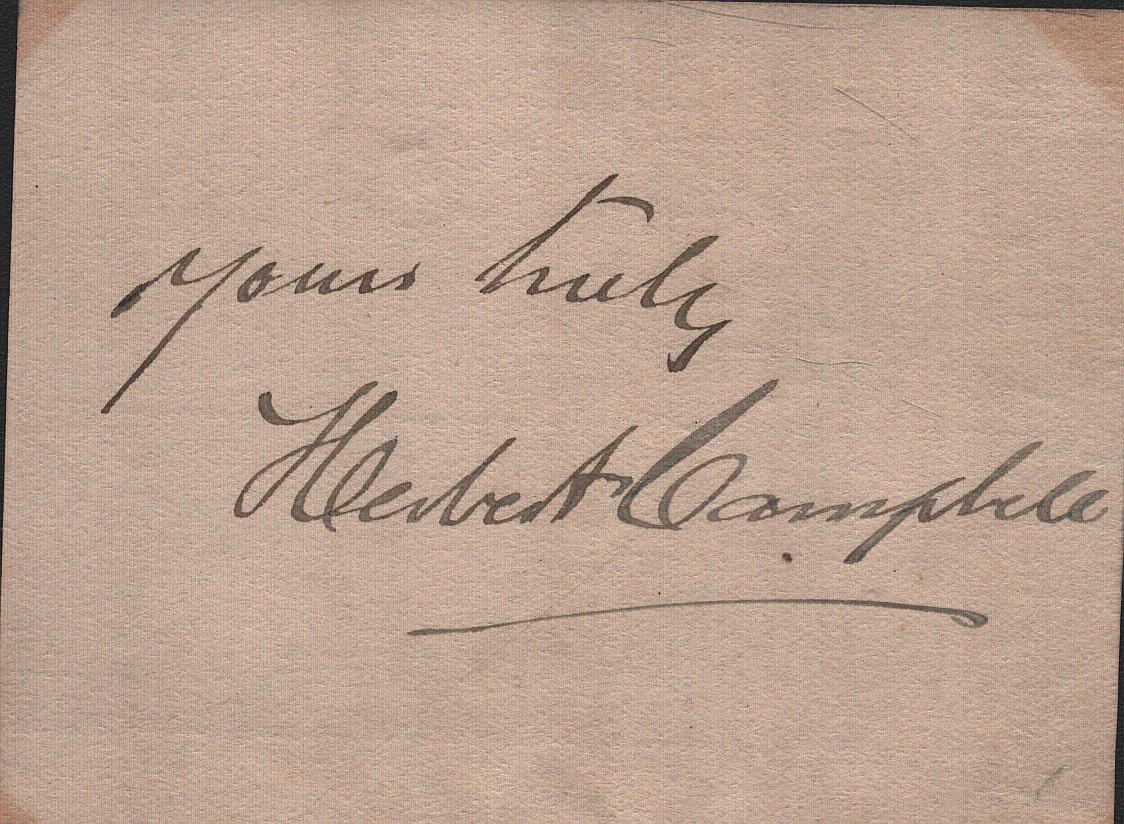 yours truly
Herbert Campbell